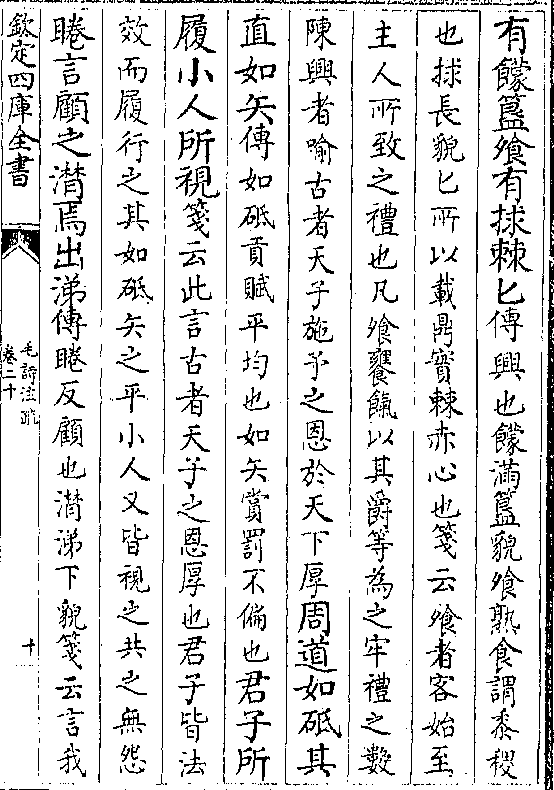 有饛簋飧有捄棘匕傳興也饛滿簋貌飧熟食謂黍稷
也捄長貌匕所以載鼎實棘赤心也箋云飧者客始至
主人所致之禮也凡飧饔餼以其爵等為之牢禮之數
陳興者喻古者天子施予之恩於天下厚周道如砥其
直如矢傳如砥貢賦平均也如矢賞罰不偏也君子所
履小人所視箋云此言古者天子之恩厚也君子皆法
效而履行之其如砥矢之平小人又皆視之共之無怨
睠言顧之潸焉出涕傳睠反顧也潸涕下貌箋云言我
欽定四庫全書
毛詩注疏
卷二十
十